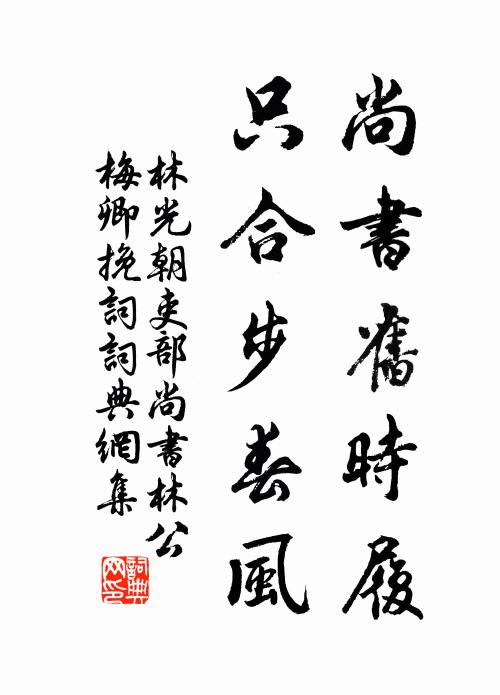 尚書舊時履
只合步春風
林光朝吏部尚書林公
梅卿挽詞詞典網集
詞典
网印